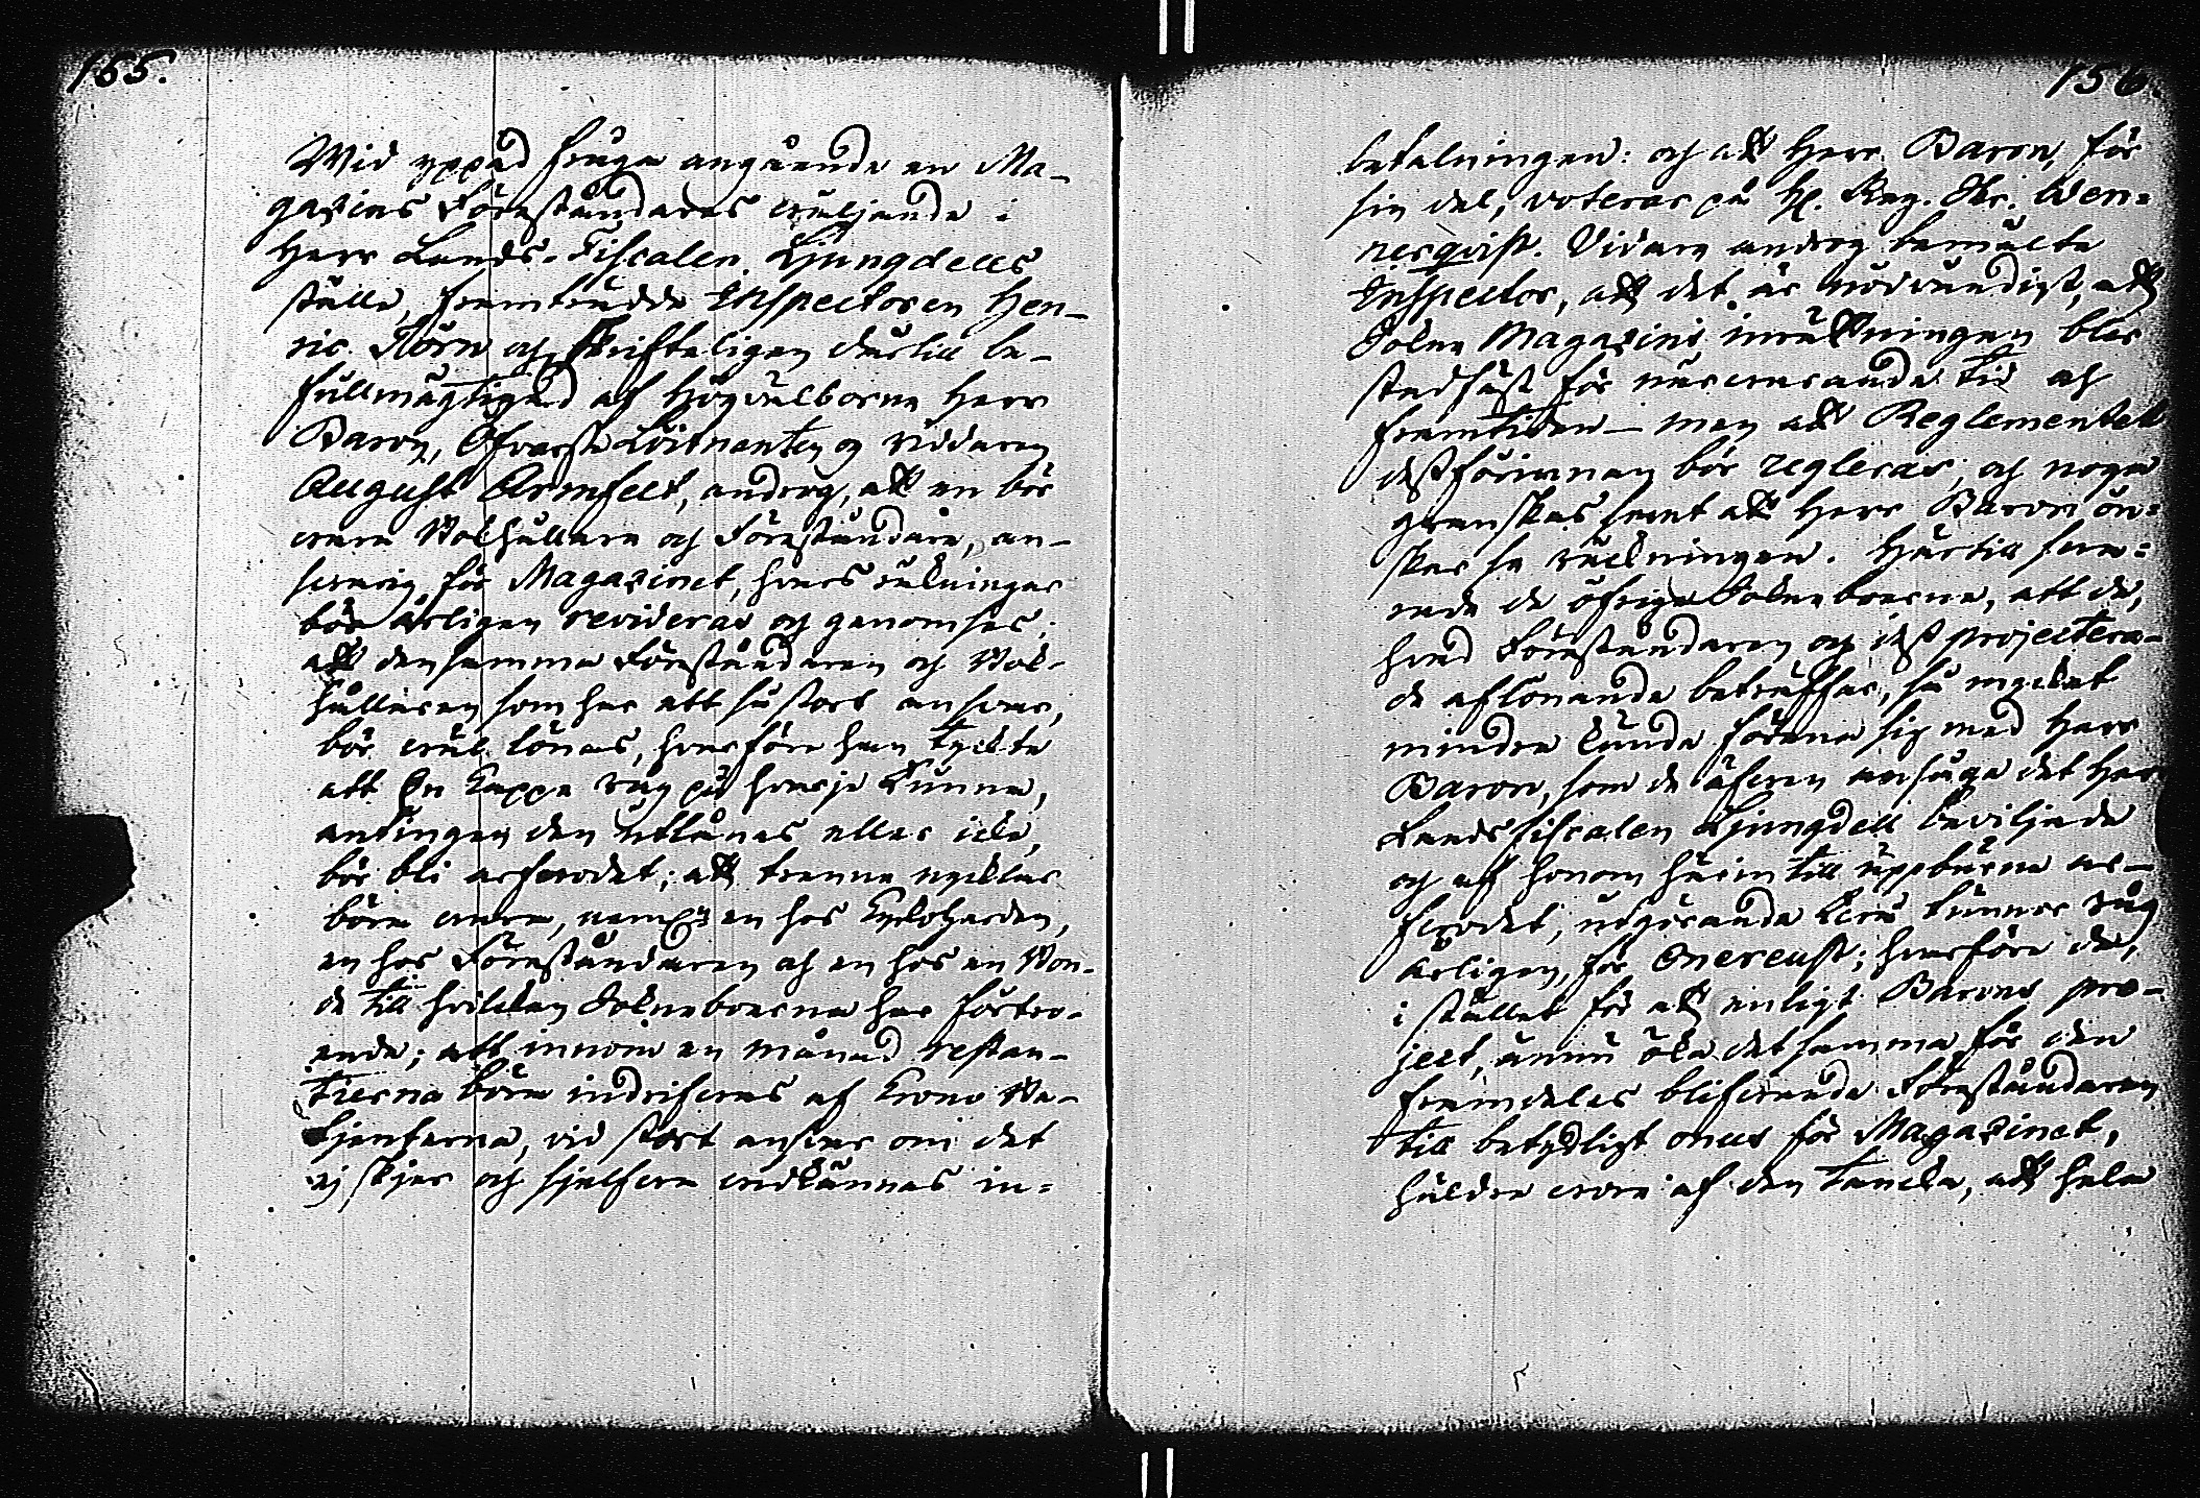 155.
Wid yppad fråga angående en Ma-
gazins Föreståndares väljande i
Herr Lands-Fiscalen Ljungdells
ställe, framträdde Inspectoren Hen-
ric Törn och skrifteligen dertill be-
fullmägtigad af Högvälborne Herr
Baron, Öfverste Löitnanten och riddaren
August Armfelt, androg, att en bör
vara Bokhållare och Föreståndare, an-
svarig för Magazinet, hvars räkningar
böra årligen revideras och genomses;
att densamma Föreståndaren och Bok-
hållaren som har ett så stort ansvar,
bör väl lönas, hvarföre han tyckte
att En kappe råg på hvarje Tunna,
antingen den utlånas eller icke,
bör bli arfvodet; att trenne nycklar
böra vara, neml: en hos Kyrkoherden,
en hos Föreståndaren och en hos en Bon-
de till hvilken Socknboerna har förtro-
ende; att innom en månad restan-
tierna böra indrifvas af Krono Be-
tjenterna, vid stort ansvar om det
ej skjer och sjelfva erkännas in-
156.
betalningen: och att Herr Baron, för
sin del, voterar på H. Reg. Skr. Wen-
nerqvist. Vidare androg bemälte
Inspector, att det är nödvändigt, att
Sokne Magazins inrättningen blir
stadfäst för närvarande tid och
framtiden – men att Reglementet
dessförinnan bör regleras, och noga
granskas samt att Herr Baron ön-
skar se räckningen. Härtill sva-
rade de öfrige Sokneboerne, att de,
hvad Föreståndaren och dess projectera-
de aflönande beträffar, så mycket
mindre kunde förena sig med Herr
Baron, som de äfven ansågo det Herr
Landsfiscalen Ljungdell beviljade
och af honom härintill uppburna ar-
fvodet, utgörande fem tunnor råg
årligen, för Onereust; hvarföre de,
i stället för att enligt Barons pro-
ject, ännu öka detsamma för den
framdeles blifvande Föreståndaren
till betydligt onus för Magazinet,
häldre voro af den tancka, att hela